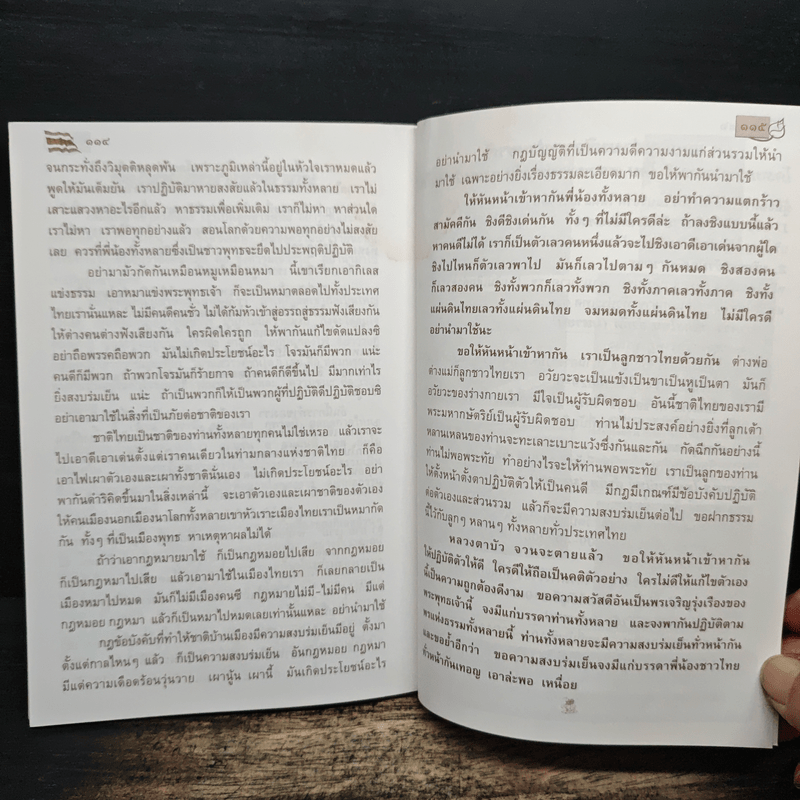 ๑๑๔
จนกระทั่งถึงวิมุตติหลุดพ้น เพราะภูมิเหล่านี้อยู่ในหัวใจเราหมดแล้ว
พูดให้มันเต็มยัน เราปฏิบัติมาหายสงสัยแล้วในธรรมทั้งหลาย เราไม่
เสาะแสวงหาอะไรอีกแล้ว หาธรรมเพื่อเพิ่มเติม เราก็ไม่หา หาส่วนใด
เราไม่หา เราพอทุกอย่างแล้ว สอนโลกด้วยความพอทุกอย่างไม่สงสัย
เลย ควรที่พี่น้องทั้งหลายซึ่งเป็นชาวพุทธจะยึดไปประพฤติปฏิบัติ
อย่ามามัวกัดกันเหมือนหมูเหมือนหมา นี้เขาเรียกเอากิเลส
แข่งธรรม เอาหมาแข่งพระพุทธเจ้า ก็จะเป็นหมาตลอดไปทั้งประเทศ
ไทยเรานั่นแหละ ไม่มีคนดีคนชั่ว ไม่ได้ก้มหัวเข้าสู่อรรถสู่ธรรมฟังเสียงกัน
ให้ต่างคนต่างฟังเสียงกัน ใครผิดใครถูก ให้พากันแก้ไขดัดแปลงซิ
อย่าถือพรรคถือพวก มันไม่เกิดประโยชน์อะไร โจรมันก็มีพวก แน่ะ
คนดีก็มีพวก ถ้าพวกโจรมันก็ร้ายกาจ ถ้าคนดีก็ดีขึ้นไป มีมากเท่าไร
ยิ่งสงบร่มเย็น แน่ะ ถ้าเป็นพวกก็ให้เป็นพวกผู้ที่ปฏิบัติดีปฏิบัติชอบซิ
อย่าเอามาใช้ในสิ่งที่เป็นภัยต่อชาติของเรา
ชาติไทยเป็นชาติของท่านทั้งหลายทุกคนไม่ใช่เหรอ แล้วเราจะ
ไปเอาดีเอาเด่นตั้งแต่เราคนเดียวในท่ามกลางแห่งชาติไทย ก็คือ
เอาไฟเผาตัวเองและเผาทั้งชาตินั่นเอง ไม่เกิดประโยชน์อะไร อย่า
พากันดำริคิดขึ้นมาในสิ่งเหล่านี้ จะเอาตัวเองและเผาชาติของตัวเอง
ให้คนเมืองนอกเมืองนาโลกทั้งหลายเขาหัวเราะเมืองไทยเราเป็นหมากัด
กัน ทั้งๆ ที่เป็นเมืองพุทธ หาเหตุหาผลไม่ได้
ถ้าว่าเอากฎหมายมาใช้ ก็เป็นกฎหมอยไปเสีย จากกฎหมอย
ก็เป็นกฎหมาไปเสีย แล้วเอามาใช้ในเมืองไทยเรา ก็เลยกลายเป็น
เมืองหมาไปหมด มันก็ไม่มีเมืองคนซี กฎหมายไม่มี-ไม่มีคน มีแต่
กฎหมอย กฎหมา แล้วก็เป็นหมาไปหมดเลยเท่านั้นแหละ อย่านำมาใช้
กฎข้อบังคับที่ทำให้ชาติบ้านเมืองมีความสงบร่มเย็นมีอยู่ ตั้งมา
ตั้งแต่กาลไหนๆ แล้ว ก็เป็นความสงบร่มเย็น อันกฎหมอย กฎหมา
มีแต่ความเดือดร้อนวุ่นวาย เผานู้น เผานี้ มันเกิดประโยชน์อะไร
๑๑๕
อย่านำมาใช้ กฎบัญญัติที่เป็นความดีความงามแก่ส่วนรวมให้นำ
มาใช้ เฉพาะอย่างยิ่งเรื่องธรรมละเอียดมาก ขอให้พากันนำมาใช้
ให้หันหน้าเข้าหากันพี่น้องทั้งหลาย อย่าทำความแตกร้าว
สามัคคีกัน ชิงดีชิงเด่นกัน ทั้งๆ ที่ไม่มีใครดีล่ะ ถ้าลงชิงแบบนี้แล้ว
หาคนดีไม่ได้ เราก็เป็นตัวเลวคนหนึ่งแล้วจะไปชิงเอาดีเอาเด่นจากผู้ใด
ชิงไปไหนก็ตัวเลวพาไป มันก็เลวไปตามๆ กันหมด ชิงสองคน
ก็เลวสองคน ชิงทั้งพวกก็เลวทั้งพวก ชิงทั้งภาคเลวทั้งภาค ชิงทั้ง
แผ่นดินไทยเลวทั้งแผ่นดินไทย จมหมดทั้งแผ่นดินไทย ไม่มีใครดี
อย่านำมาใช้นะ
ขอให้หันหน้าเข้าหากัน เราเป็นลูกชาวไทยด้วยกัน ต่างพ่อ
ต่างแม่ก็ลูกชาวไทยเรา อวัยวะจะเป็นแข้งเป็นขาเป็นหูเป็นตา มันก็
อวัยวะของร่างกายเรา มีใจเป็นผู้รับผิดชอบ อันนี้ชาติไทยของเรามี
พระมหากษัตริย์เป็นผู้รับผิดชอบ ท่านไม่ประสงค์อย่างยิ่งที่ลูกเต้า
หลานเหลนของท่านจะทะเลาะเบาะแว้งซึ่งกันและกัน กัดฉีกกันอย่างนี้
ท่านไม่พอพระทัย ทำอย่างไรจะให้ท่านพอพระทัย เราเป็นลูกของท่าน
ให้ตั้งหน้าตั้งตาปฏิบัติตัวให้เป็นคนดี มีกฎมีเกณฑ์มีข้อบังคับปฏิบัติ
ต่อตัวเองและส่วนรวม แล้วก็จะมีความสงบร่มเย็นต่อไป ขอฝากธรรม
นี้ไว้กับลูกๆ หลานๆ ทั้งหลายทั่วประเทศไทย
หลวงตาบัว จวนจะตายแล้ว ขอให้หันหน้าเข้าหากัน
ให้ปฏิบัติตัวให้ดี ใครดีให้ถือเป็นคติตัวอย่าง ใครไม่ดีให้แก้ไขตัวเอง
นี้เป็นความถูกต้องดีงาม ขอความสวัสดีอันเป็นพรเจริญรุ่งเรืองของ
พระพุทธเจ้านี้ จงมีแก่บรรดาท่านทั้งหลาย และจงพากันปฏิบัติตาม
พรแห่งธรรมทั้งหลายนี้ ท่านทั้งหลายจะมีความสงบร่มเย็นทั่วหน้ากัน
และขอย้ำอีกว่า ขอความสงบร่มเย็นจงมีแก่บรรดาพี่น้องชาวไทย
ทั่วหน้ากันเทอญ เอาล่ะพอ เหนื่อย